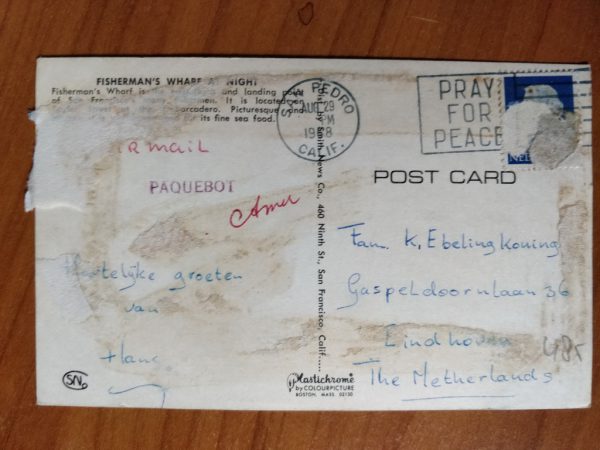 FISHERMAN'S WHARF AT NIGHT
Fisherman's Wharf is the and landing point
of San Francisco's It is located on
Picturesque and
for its fine sea food.
SAN PEDRO
AUG 29
PM
1968
CALIF.
PRAY
FOR
PEACE
NEDE
R MAIL
PAQUEBOT
by Smith News Co., 460 Ninth St., San Francisco, Calif.
POST CARD
Fam. K. Ebeling Koning
Gaspeldoornlaan 36
Eindhoven
The Netherlands
Hartelijke groeten
van
Hans
SN
Plastichrome
by COLOURPICTURE
BOSTON, MASS. 02130